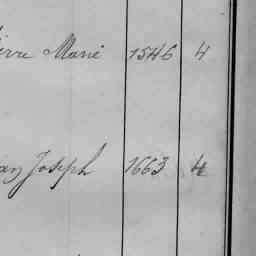 ierre Marie 1546 4
Joseph 1663 4